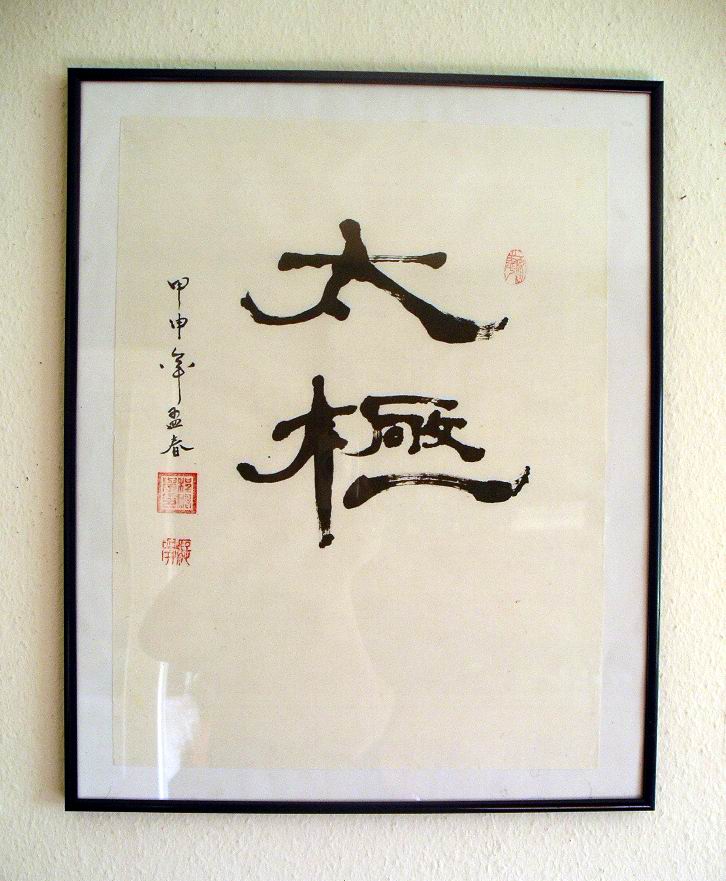 太極
甲申年孟春